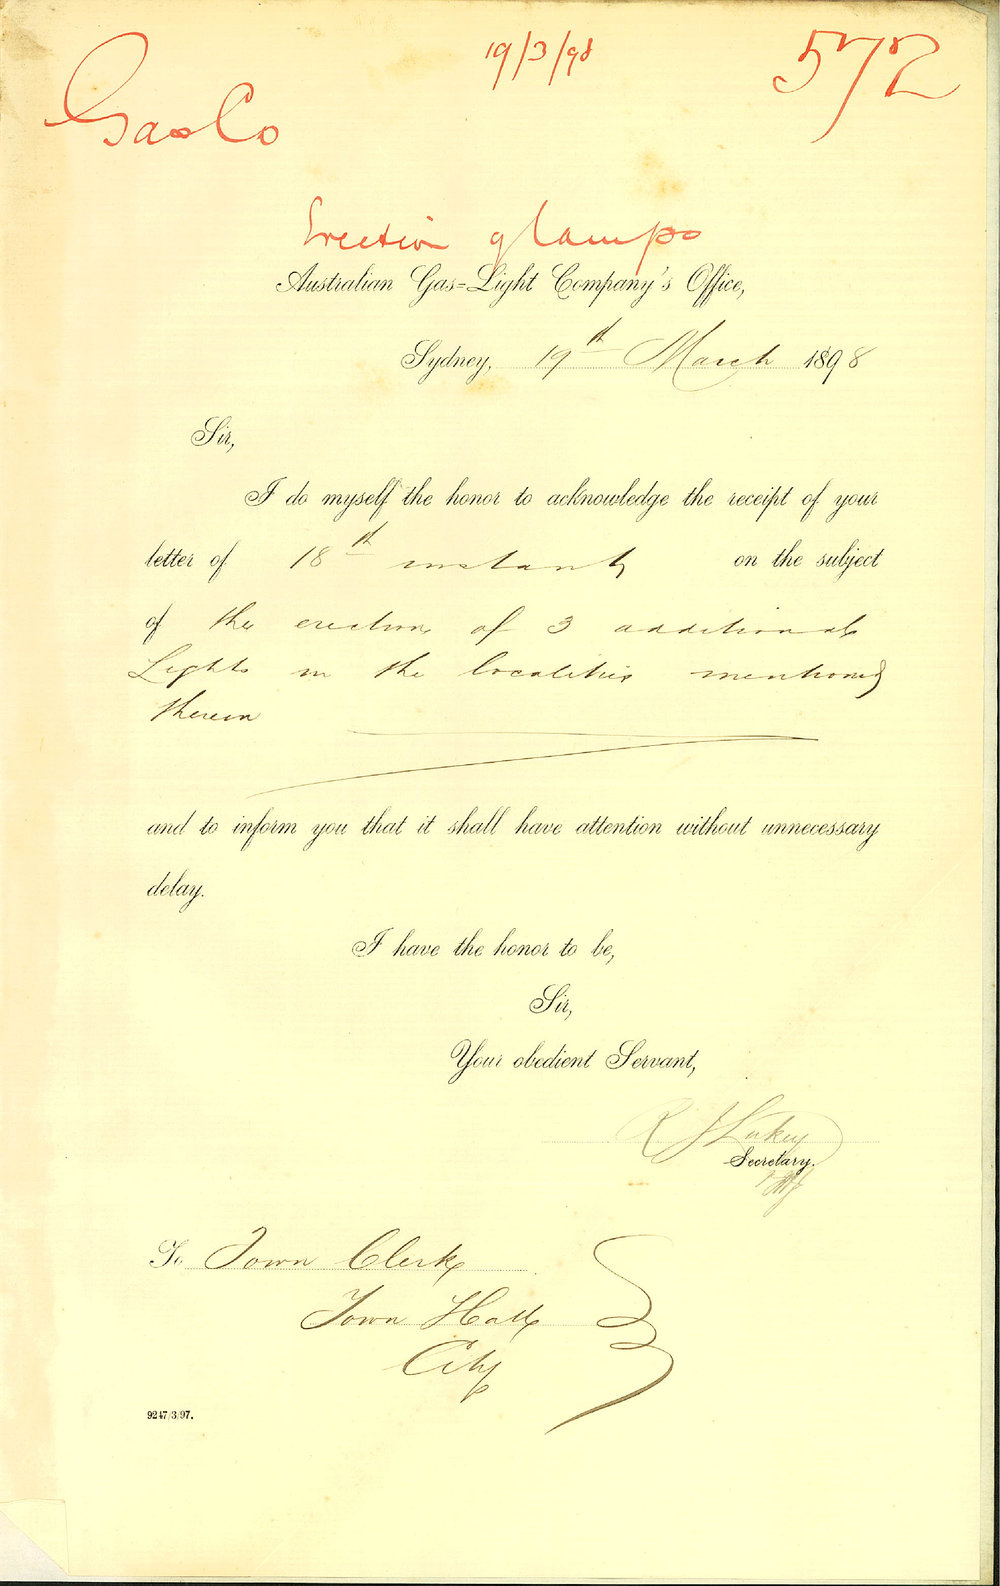 19/3/98
572
Gas Co
Erection of Lamps
Australian Gas=Light Company's Office,
Sydney, 19th March 1898
Sir,
I do myself the honor to acknowledge the receipt of your
letter of 18th instant on the subject
of the erection of 3 additional
Lights in the localities mentioned
therein
and to inform you that it shall have attention without unnecessary
delay.
I have the honor to be,
Sir,
Your obedient Servant,
R J Lukey
Secretary.
To Town Clerk
Town Hall
City
9247/3/97.